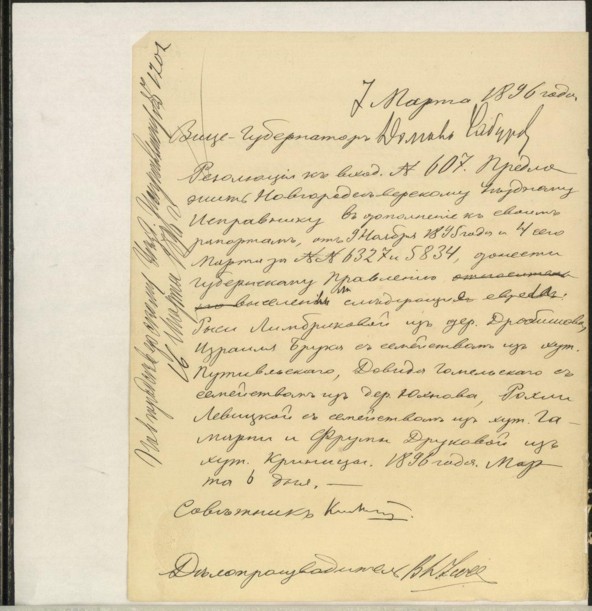 7 Марта 1896 года
Вице-Губернаторъ
Резолюція къ вход. № 607. Предло
жить Новгородсѣверскому Уѣздному
Исправнику въ дополненіе къ своимъ
рапортамъ, отъ 9 Ноября 1895 года и 4 сего
Марта за №№ 6327 и 5834, донести
Губернскому Правленію относитель
но выселенія слѣдующихъ евреевъ:
Лимбриковой изъ дер.
Израиля Брука съ семействомъ изъ хут.
Путивльскаго, Довида Гомельскаго съ
семействомъ изъ дер. Юхнова, Рохли
Левицкой съ семействомъ изъ хут. Га-
марни и Фрумы Друковой изъ
хут. Криницы. 1896 года. Мар
та 6 дня. —
Совѣтникъ
Дѣлопроизводитель
Марта № 1201